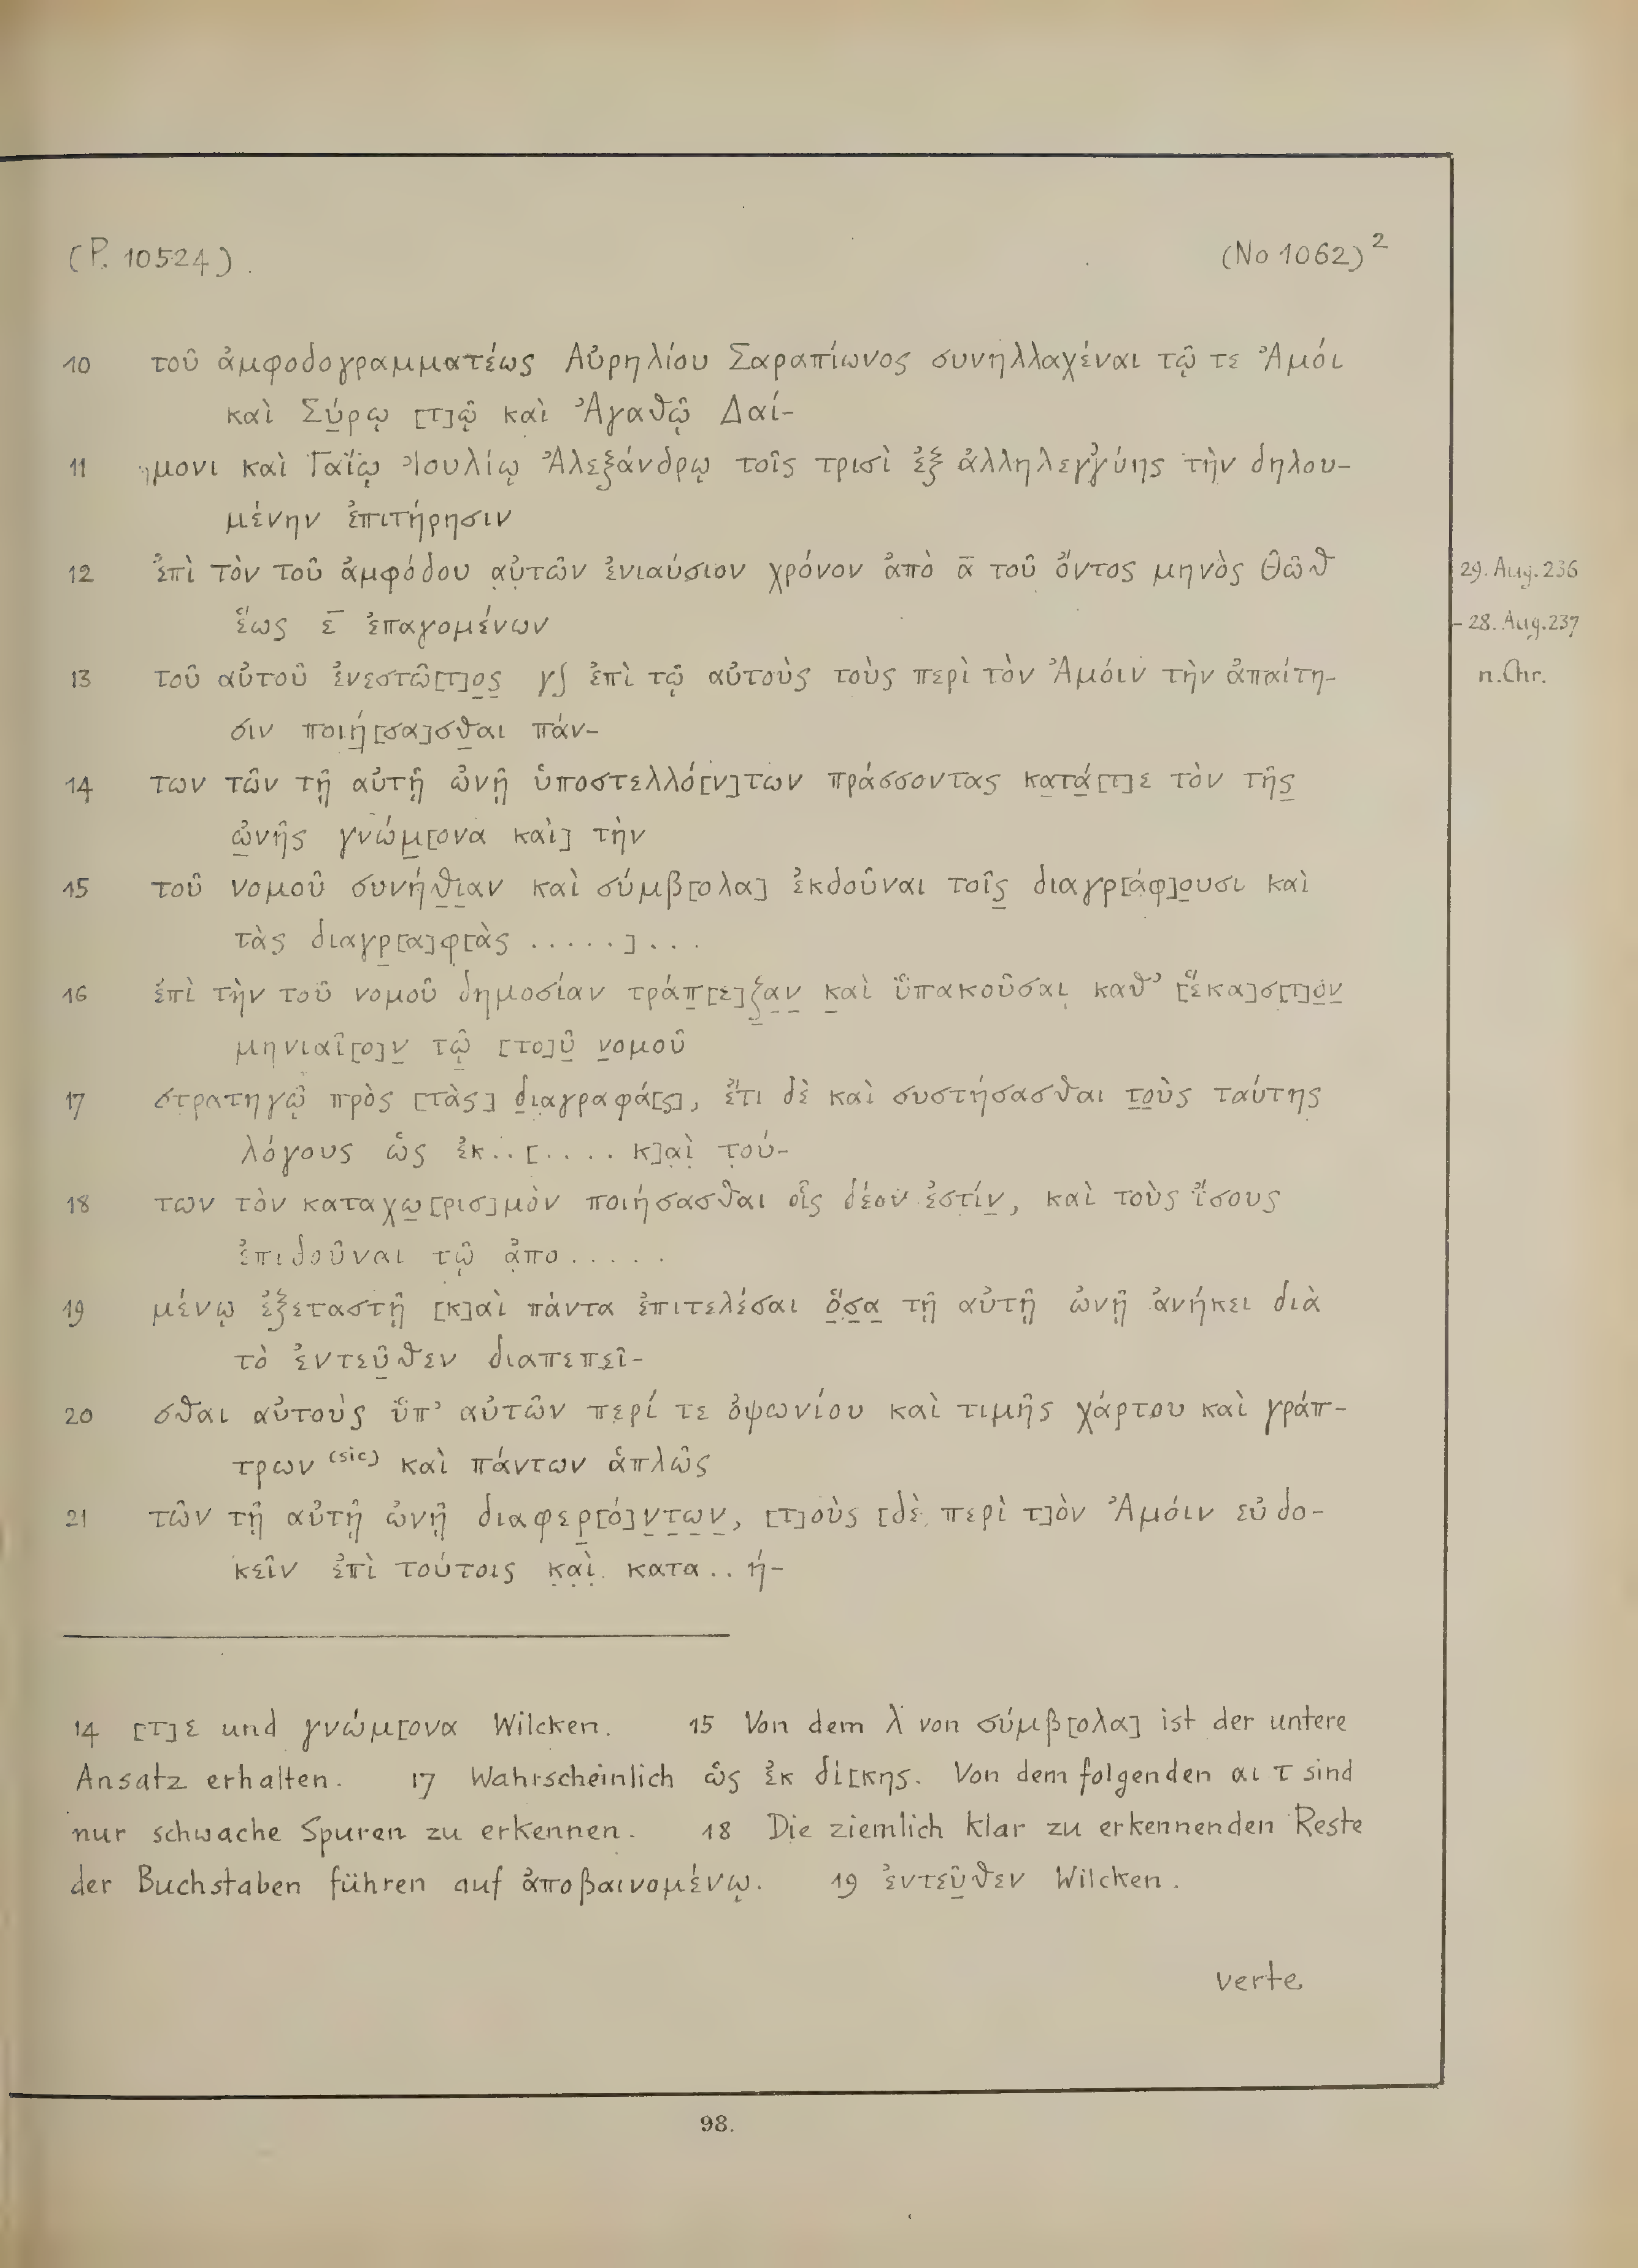 (P. 10524). (No 1062)²
10 τοῦ ἀμφοδογραμματέως Αὐρηλίου Σαραπίωνος συνηλλαχέναι τῷ τε Ἀμόι
καὶ Σύ̣ρῳ [τ]ῷ καὶ Ἀγαθῷ Δαί-
11 μονι καὶ Γαΐῳ Ἰουλίῳ Ἀλεξάνδρῳ τοῖς τρισὶ ἐξ ἀλληλεγγύης τὴν δηλου-
μένην ἐπιτήρησιν
12 ἐπὶ τὸν τοῦ ἀμφόδου α̣ὐ̣τῶν ἐνιαύσιον χρόνον ἀπὸ α̅ τοῦ ὄντος μηνὸς Θὼθ 29. Aug. 236
ἕως ε̅ ἐπαγομένων - 28. Aug. 237
13 τοῦ αὐτοῦ ἐνεστῶ[τ]ο̣ς̣ γ∫ ἐπὶ τῷ αὐτοὺς τοὺς περὶ τὸν Ἀμόιν τὴν ἀπαίτη- n. Chr.
σιν ποιή̣[σα]σθ̣αι πάν-
14 των τῶν τῇ αὐτῇ ὠνῇ ὑποστελλό[ν]των πράσσοντας κα̣τά̣[τ]ε τὸν τῆς̣
ὠ̣νῆς γνώμ̣[ονα καὶ] τὴν
15 τοῦ νομοῦ συνήθ̣ι̣αν καὶ σύμβ[ολα] ἐκδοῦναι τοῖς̣ διαγρ[άφ]ο̣υσι καὶ
τὰς διαγρ̣[α]φ[ὰς .....]...
16 ἐπὶ τὴν τοῦ νομοῦ δημοσίαν τράπ̣[ε]ζ̣α̣ν̣ κ̣αὶ ὑπακοῦσαι̣ καθ’ [ἕκα]σ[τ]ο̣ν̣
μηνιαῖ[ο]ν̣ τῷ̣ [το]ῦ̣ ν̣ομοῦ
17 στρατηγῷ πρὸς [τὰς] δ̣ιαγραφά[ς], ἔτι δὲ καὶ συστήσασθαι τ̣ο̣ὺς ταύτης
λόγους ὡς ἐκ..[.... κ]α̣ὶ̣ τ̣ού-
18 των τὸν καταχω̣[ρισ]μὸν ποιήσασθαι οἷς δέον ἐστίν̣, καὶ τοὺς ἴσους
ἐπιδοῦναι τῷ ἀ̣πο.....
19 μένῳ ἐξεταστῇ [κ]αὶ πάντα ἐπιτελέσαι ὅ̣σ̣α̣ τῇ αὐτῇ ὠνῇ ἀνήκει διὰ
τὸ ἐντεῦ̣θεν διαπεπεῖ-
20 σθαι αὐτοὺς ὑπ’ αὐτῶν περί τε ὀψωνίου καὶ τιμῆς χάρτου καὶ γράπ-
τρων (sic) καὶ πάντων ἁπλῶς
21 τῶν τῇ αὐτῇ ὠνῇ διαφερ̣[ό]ν̣τ̣ω̣ν̣, [τ]οὺς [δὲ περὶ τ]ὸν Ἀμόιν εὐδο-
κεῖν ἐπὶ τούτοις κ̣α̣ὶ̣ κατα..ή-
14 [τ]ε und γνώμ[ονα Wilcken. 15 Von dem λ von σύμβ[ολα] ist der untere
Ansatz erhalten. 17 Wahrscheinlich ὡς ἐκ δί[κης. Von dem folgenden αι τ sind
nur schwache Spuren zu erkennen. 18 Die ziemlich klar zu erkennenden Reste
der Buchstaben führen auf ἀποβαινομένῳ. 19 ἐντεῦ̣θεν Wilcken.
verte
98.